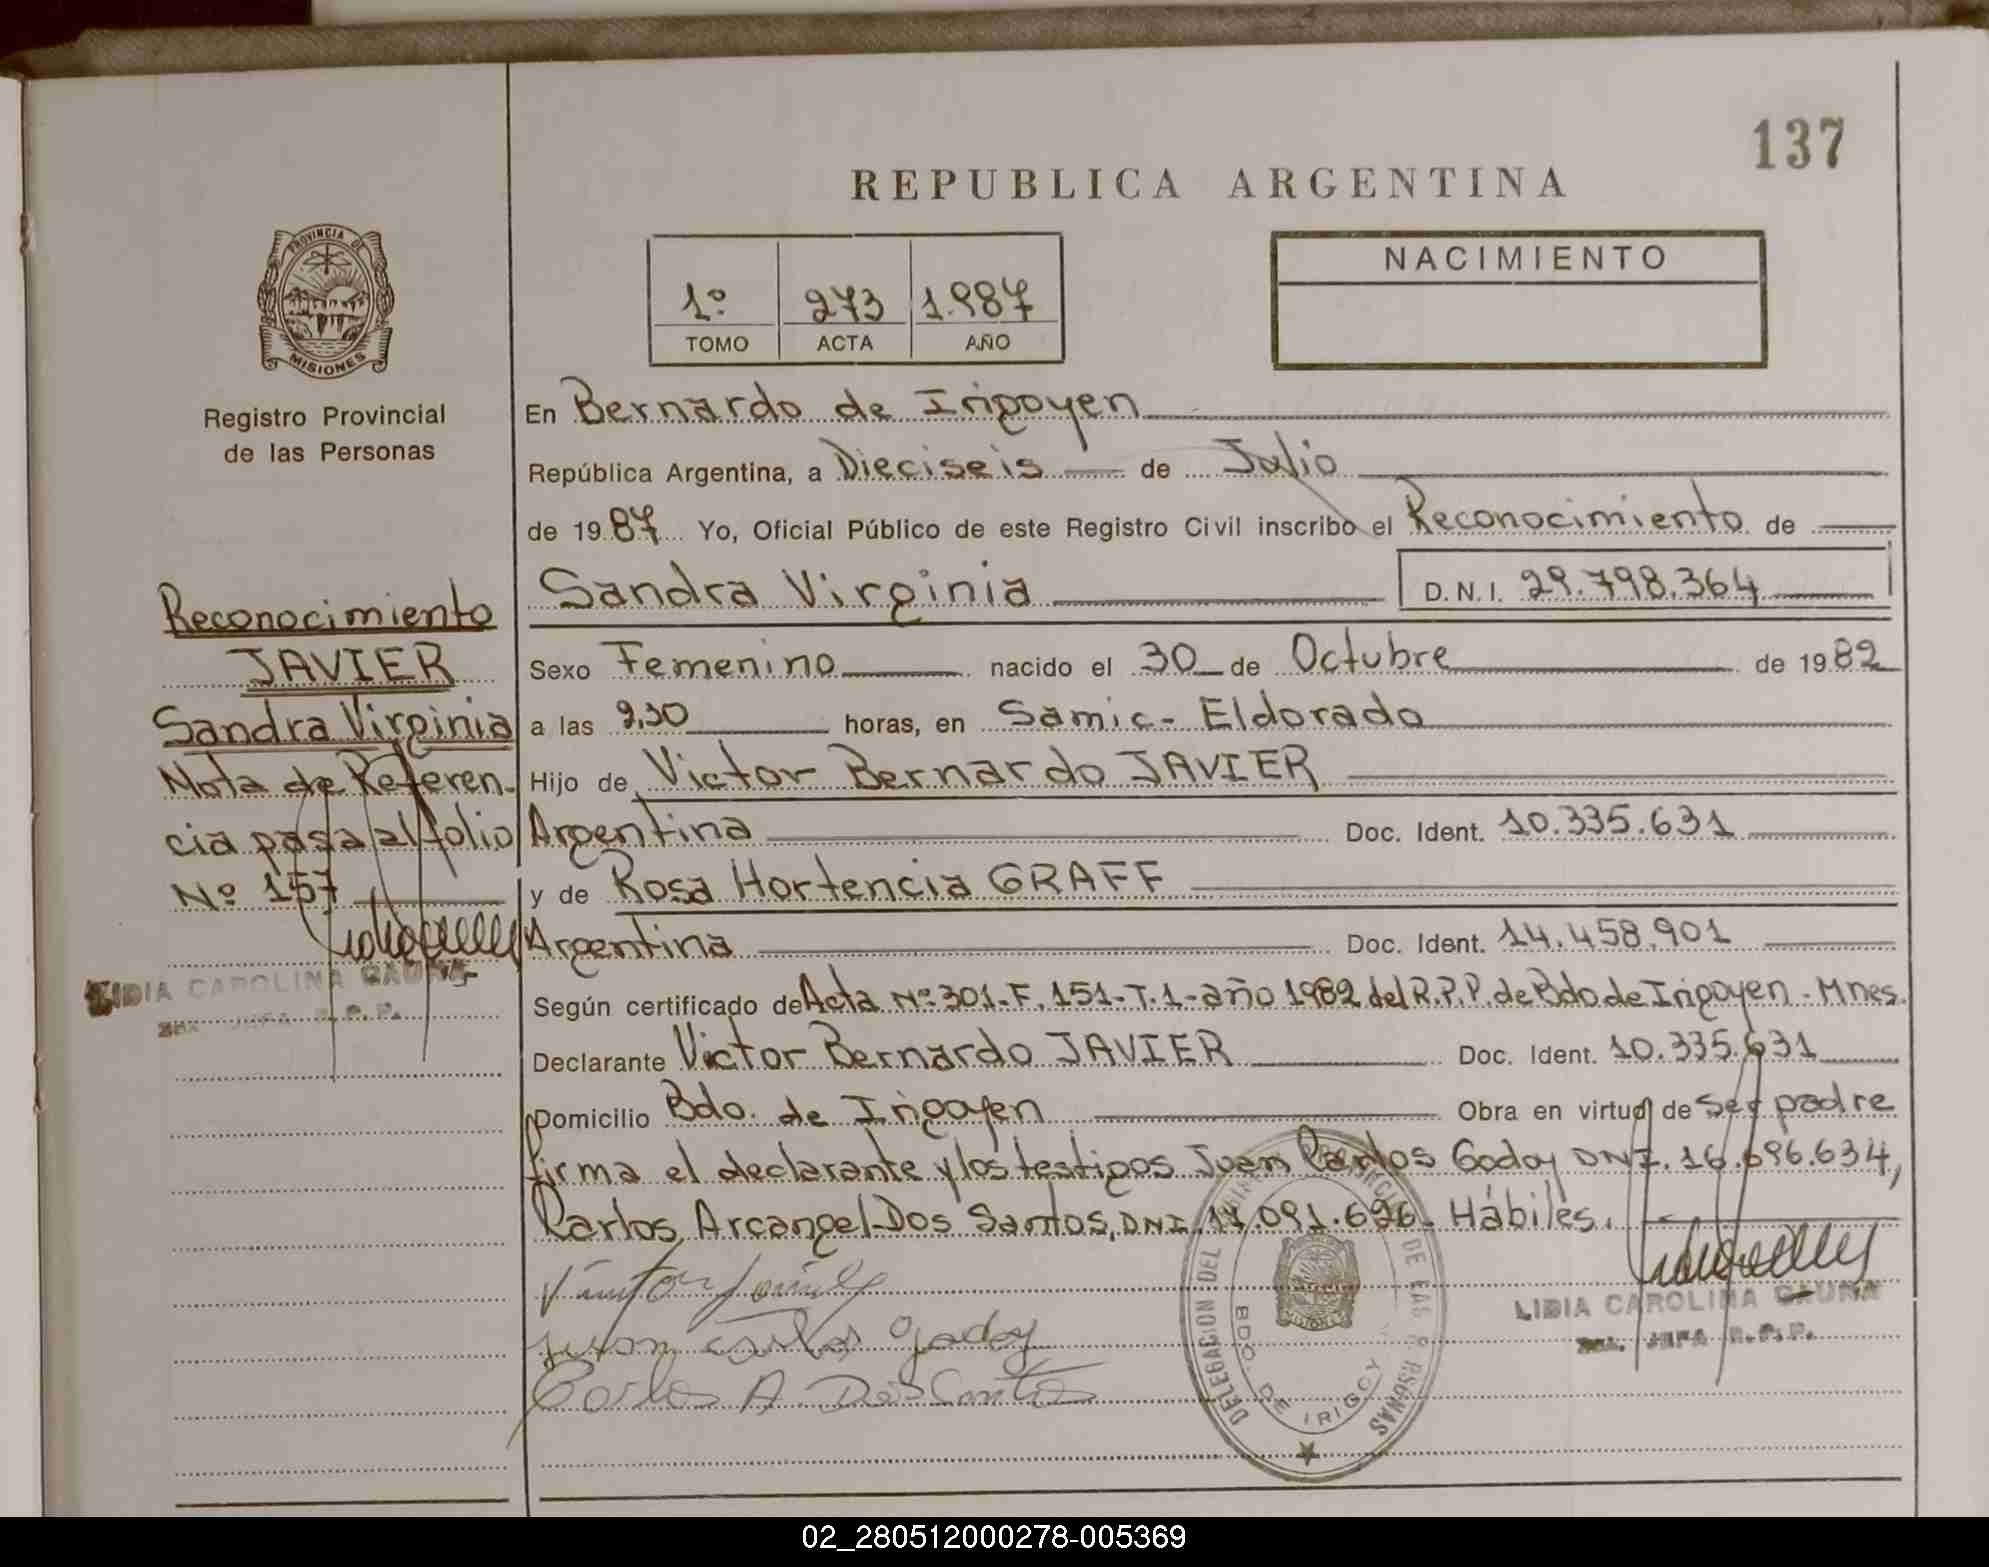 137
REPUBLICA ARGENTINA
PROVINCIA DE
MISIONES
Registro Provincial
de las Personas
1º 273 1.987
TOMO ACTA AÑO
NACIMIENTO
Reconocimiento
JAVIER
Sandra Virginia
Nota de Referen-
cia pasa al folio
Nº 157
LIDIA CAROLINA GAUNA
JEFA R.P.P.
En Bernardo de Irigoyen
República Argentina, a Dieciseis de Julio
de 1987 Yo, Oficial Público de este Registro Civil inscribo el Reconocimiento de
Sandra Virginia D.N.I. 29.798.364
Sexo Femenino nacido el 30 de Octubre de 1982
a las 9,30 horas, en Samic - Eldorado
Hijo de Victor Bernardo JAVIER
Argentina Doc. Ident. 10.335.631
y de Rosa Hortencia GRAFF
Argentina Doc. Ident. 14.458.901
Según certificado de Acta Nº 301-F. 151-T.1-año 1982 del R.P.P. de Bdo. de Irigoyen - Mnes.
Declarante Victor Bernardo JAVIER Doc. Ident. 10.335.631
Domicilio Bdo. de Irigoyen Obra en virtud de ser padre
firma el declarante y los testigos Juan Carlos Godoy DNI. 16.696.634,
Carlos Arcangel Dos Santos, DNI. 14.091.626. Hábiles.
Juan Carlos Godoy
Carlos A. Dos Santos
LIDIA CAROLINA GAUNA
JEFA R.P.P.
DELEGACION DEL DE LAS PERSONAS
BDO. DE IRIGOY
02_280512000278-005369